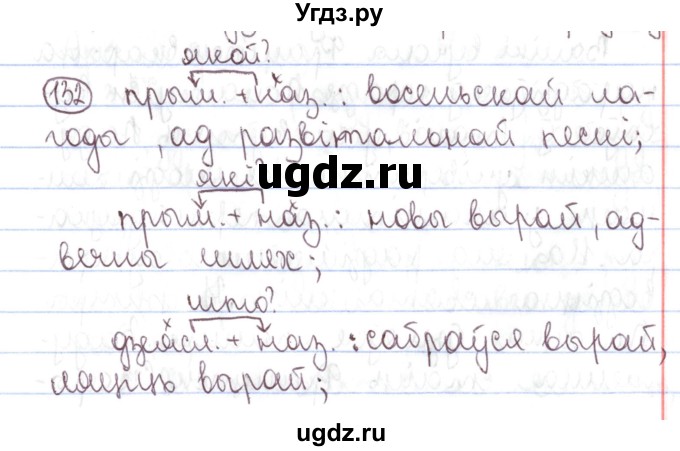 Угдз.ру
якой?
132 прым. + наз.: восеньскай ла-
годы, ад развітальнай песні;
які?
ugdz.ru
прым. + наз.: новы вырай, ад-
вечны шлях;
што?
дзеясл. + наз.: сабраўся вырай,
ляціць вырай;
ugdz.ru